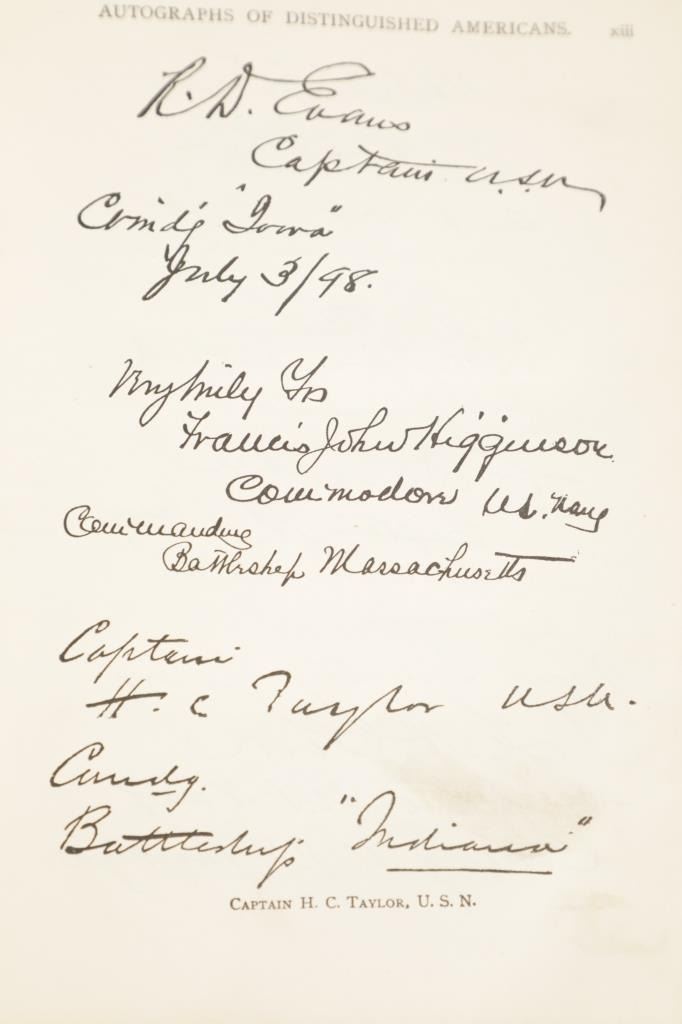 AUTOGRAPHS OF DISTINGUISHED AMERICANS. xiii
R. D. Evans
Captain U.S.N
Comdg "Iowa"
July 3/98.
Very truly Yrs
Francis John Higginson
Commodore U.S. Navy
Commanding
Battleship Massachusetts
Captain
H. C Taylor USN.
Comdg.
Battleship "Indiana"
CAPTAIN H. C. TAYLOR, U. S. N.